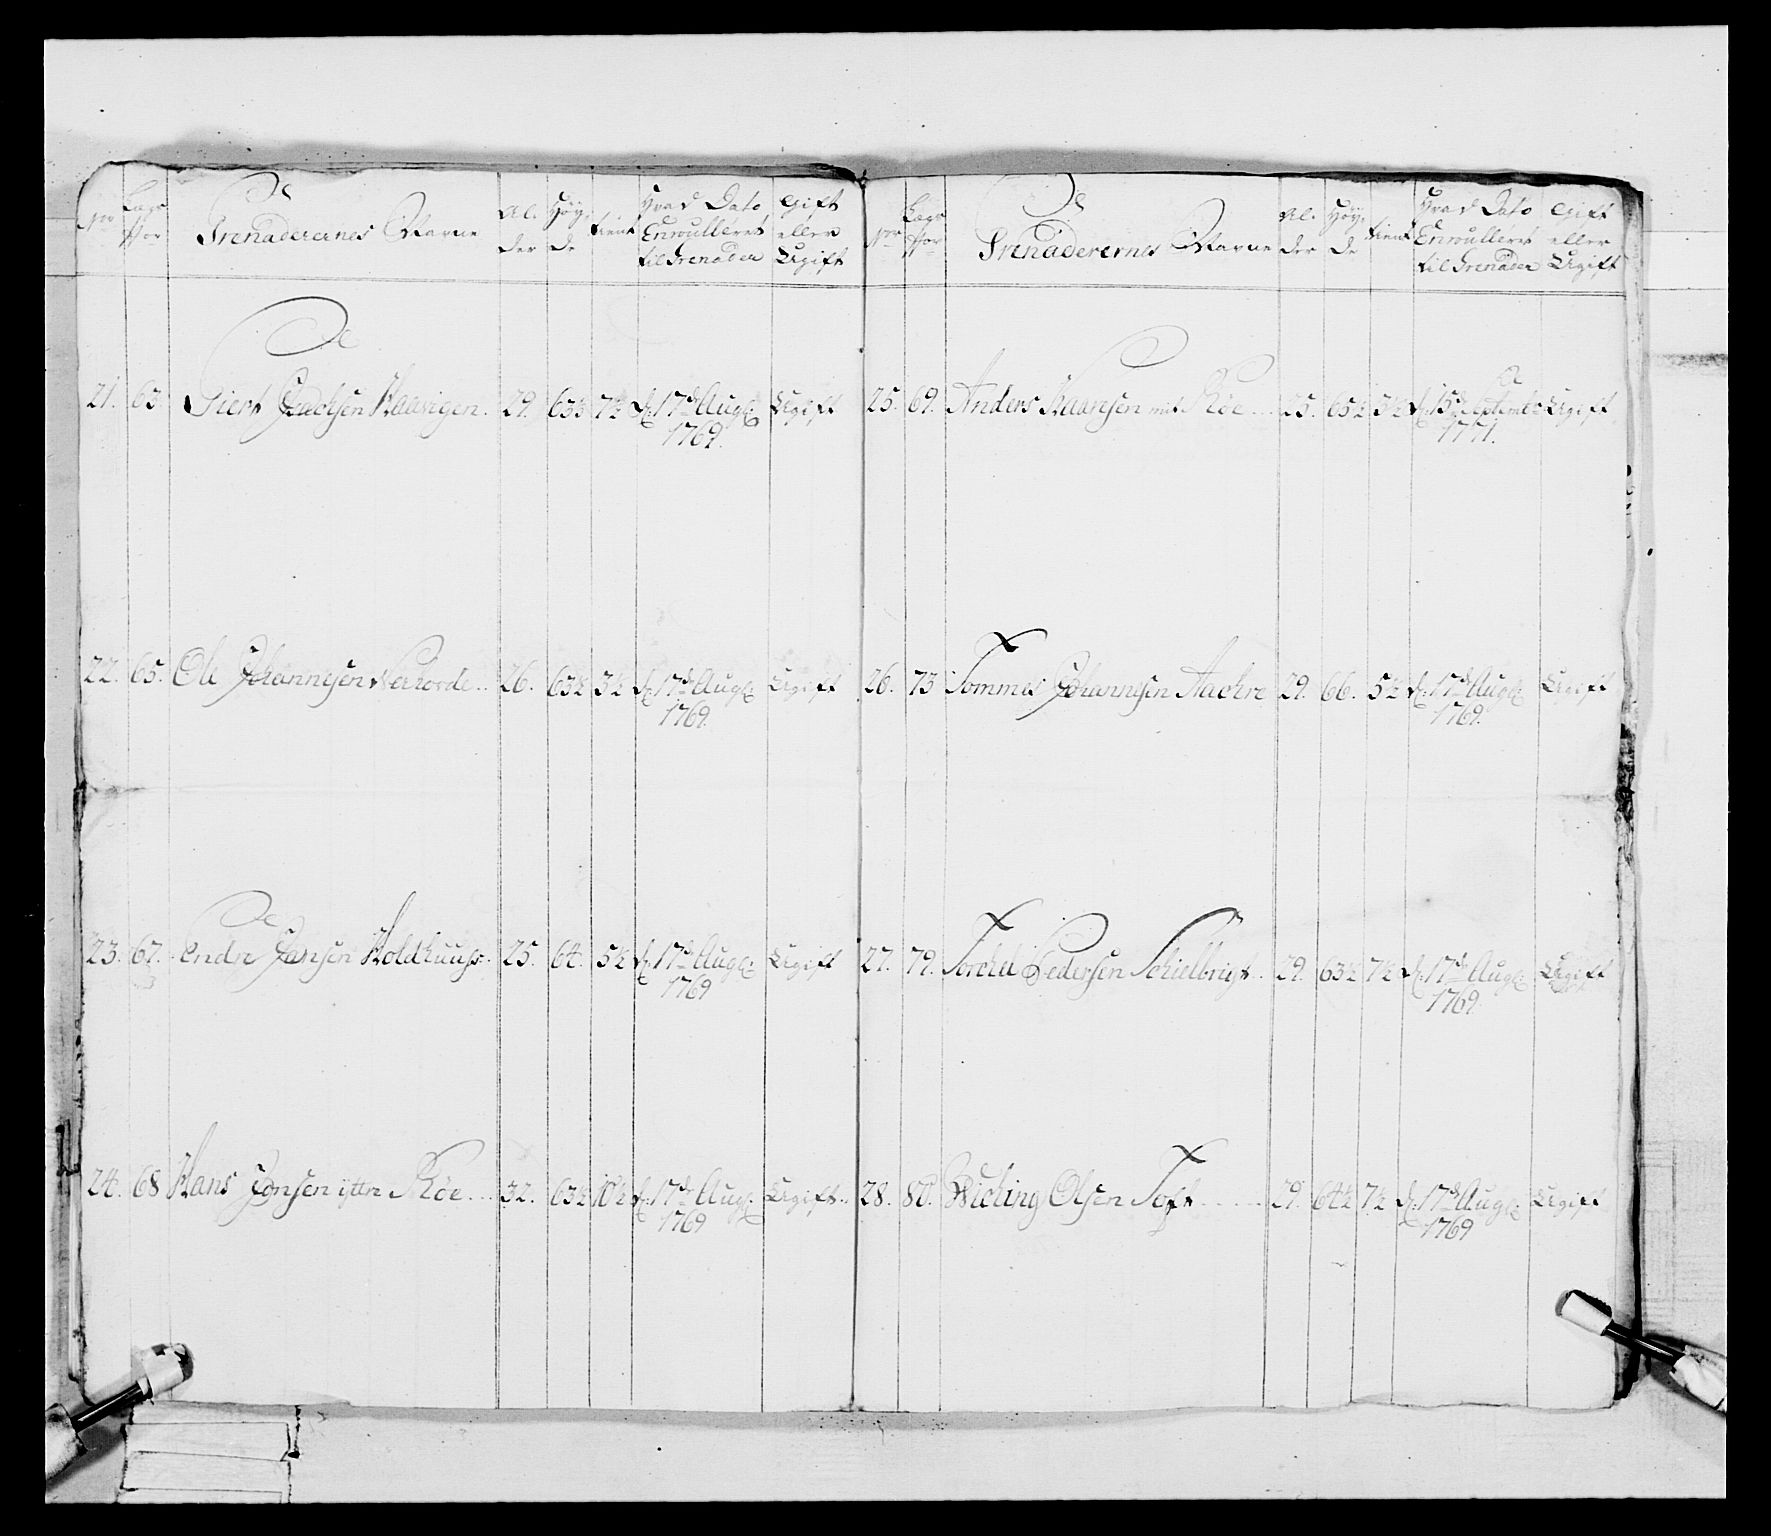 No Lægs No Grenaderernes Navne Alder Høyde tient Hvad Dato Enroulleret til Grenader Gift eller Ugift
21. 63. Siert Jachsen Haavigen. 29. 63½ 7½ d: 17de Aug: 1769. Ugift
22. 65. Ole Johannesen 26. 63½ 3½ d: 17de Aug: 1769. Ugift
23. 67. Endre Jansen Holdhuus. 25. 64. 5½ d: 17de Aug: 1769 Ugift
24. 68 Hans Jonsen yttre Røe 32. 63½ 10½ d: 17de Aug: 1769 Ugift
No Lægs No Grenaderernes Navne Alder Høyde tient Hvad Dato Enroulleret til Grenader Gift eller Ugift
25. 69. Anders Haansen mit Røe 25. 65½ 3½ d: 15de Septembr 1771. Ugift
26. 73 Tommes Johannesen Aachre 29. 66. 5½ d: 17de Aug: 1769. Ugift
27. 79. Torchel Pedersen 29. 63½ 7½ d: 17de Aug: 1769. Ugift
28. 80. Wiching Olsen Toft 29. 64½ 7½ d: 17de Aug: 1769 Ugift